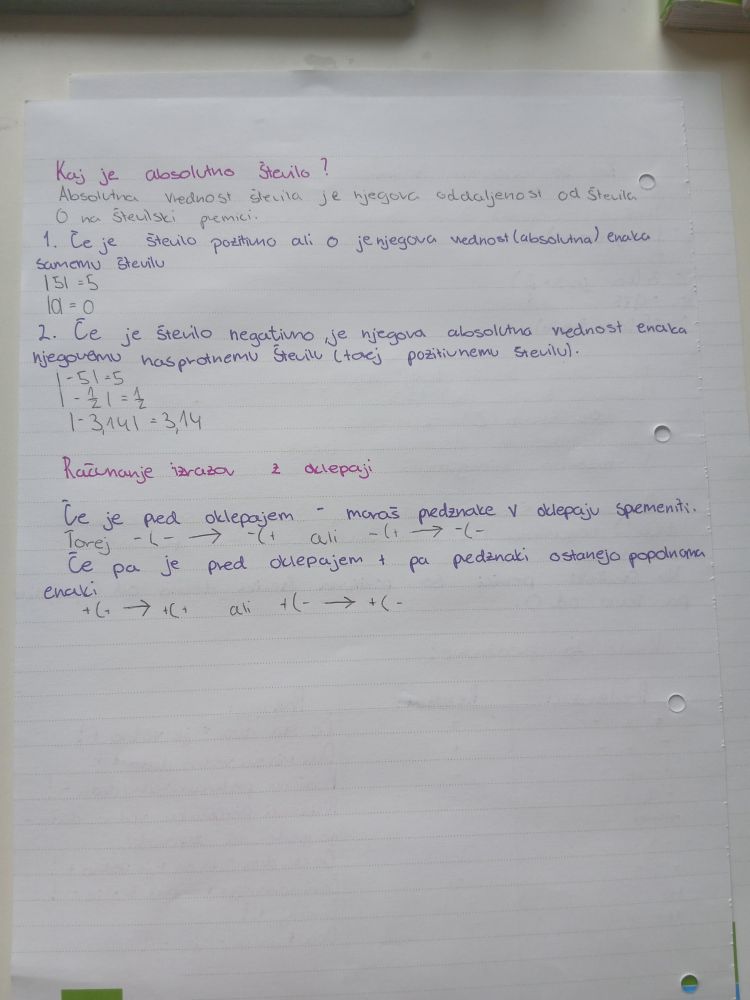 Kaj je absolutno število?
Absolutna vrednost števila je njegova oddaljenost od števila
0 na številski premici.
1. Če je število pozitivno ali 0 je njegova vrednost (absolutna) enaka
samemu številu
|5| = 5
|0| = 0
2. Če je število negativno, je njegova absolutna vrednost enaka
njegovemu nasprotnemu številu (torej pozitivnemu številu).
|-5| = 5
|-1/2| = 1/2
|-3,14| = 3,14
Računanje izrazov z oklepaji
Če je pred oklepajem - moraš predznake v oklepaju spremeniti.
Torej -(- → -(+ ali -(+ → -(-
Če pa je pred oklepajem + pa predznaki ostanejo popolnoma
enaki
+(+ → +(+ ali +(- → +(-